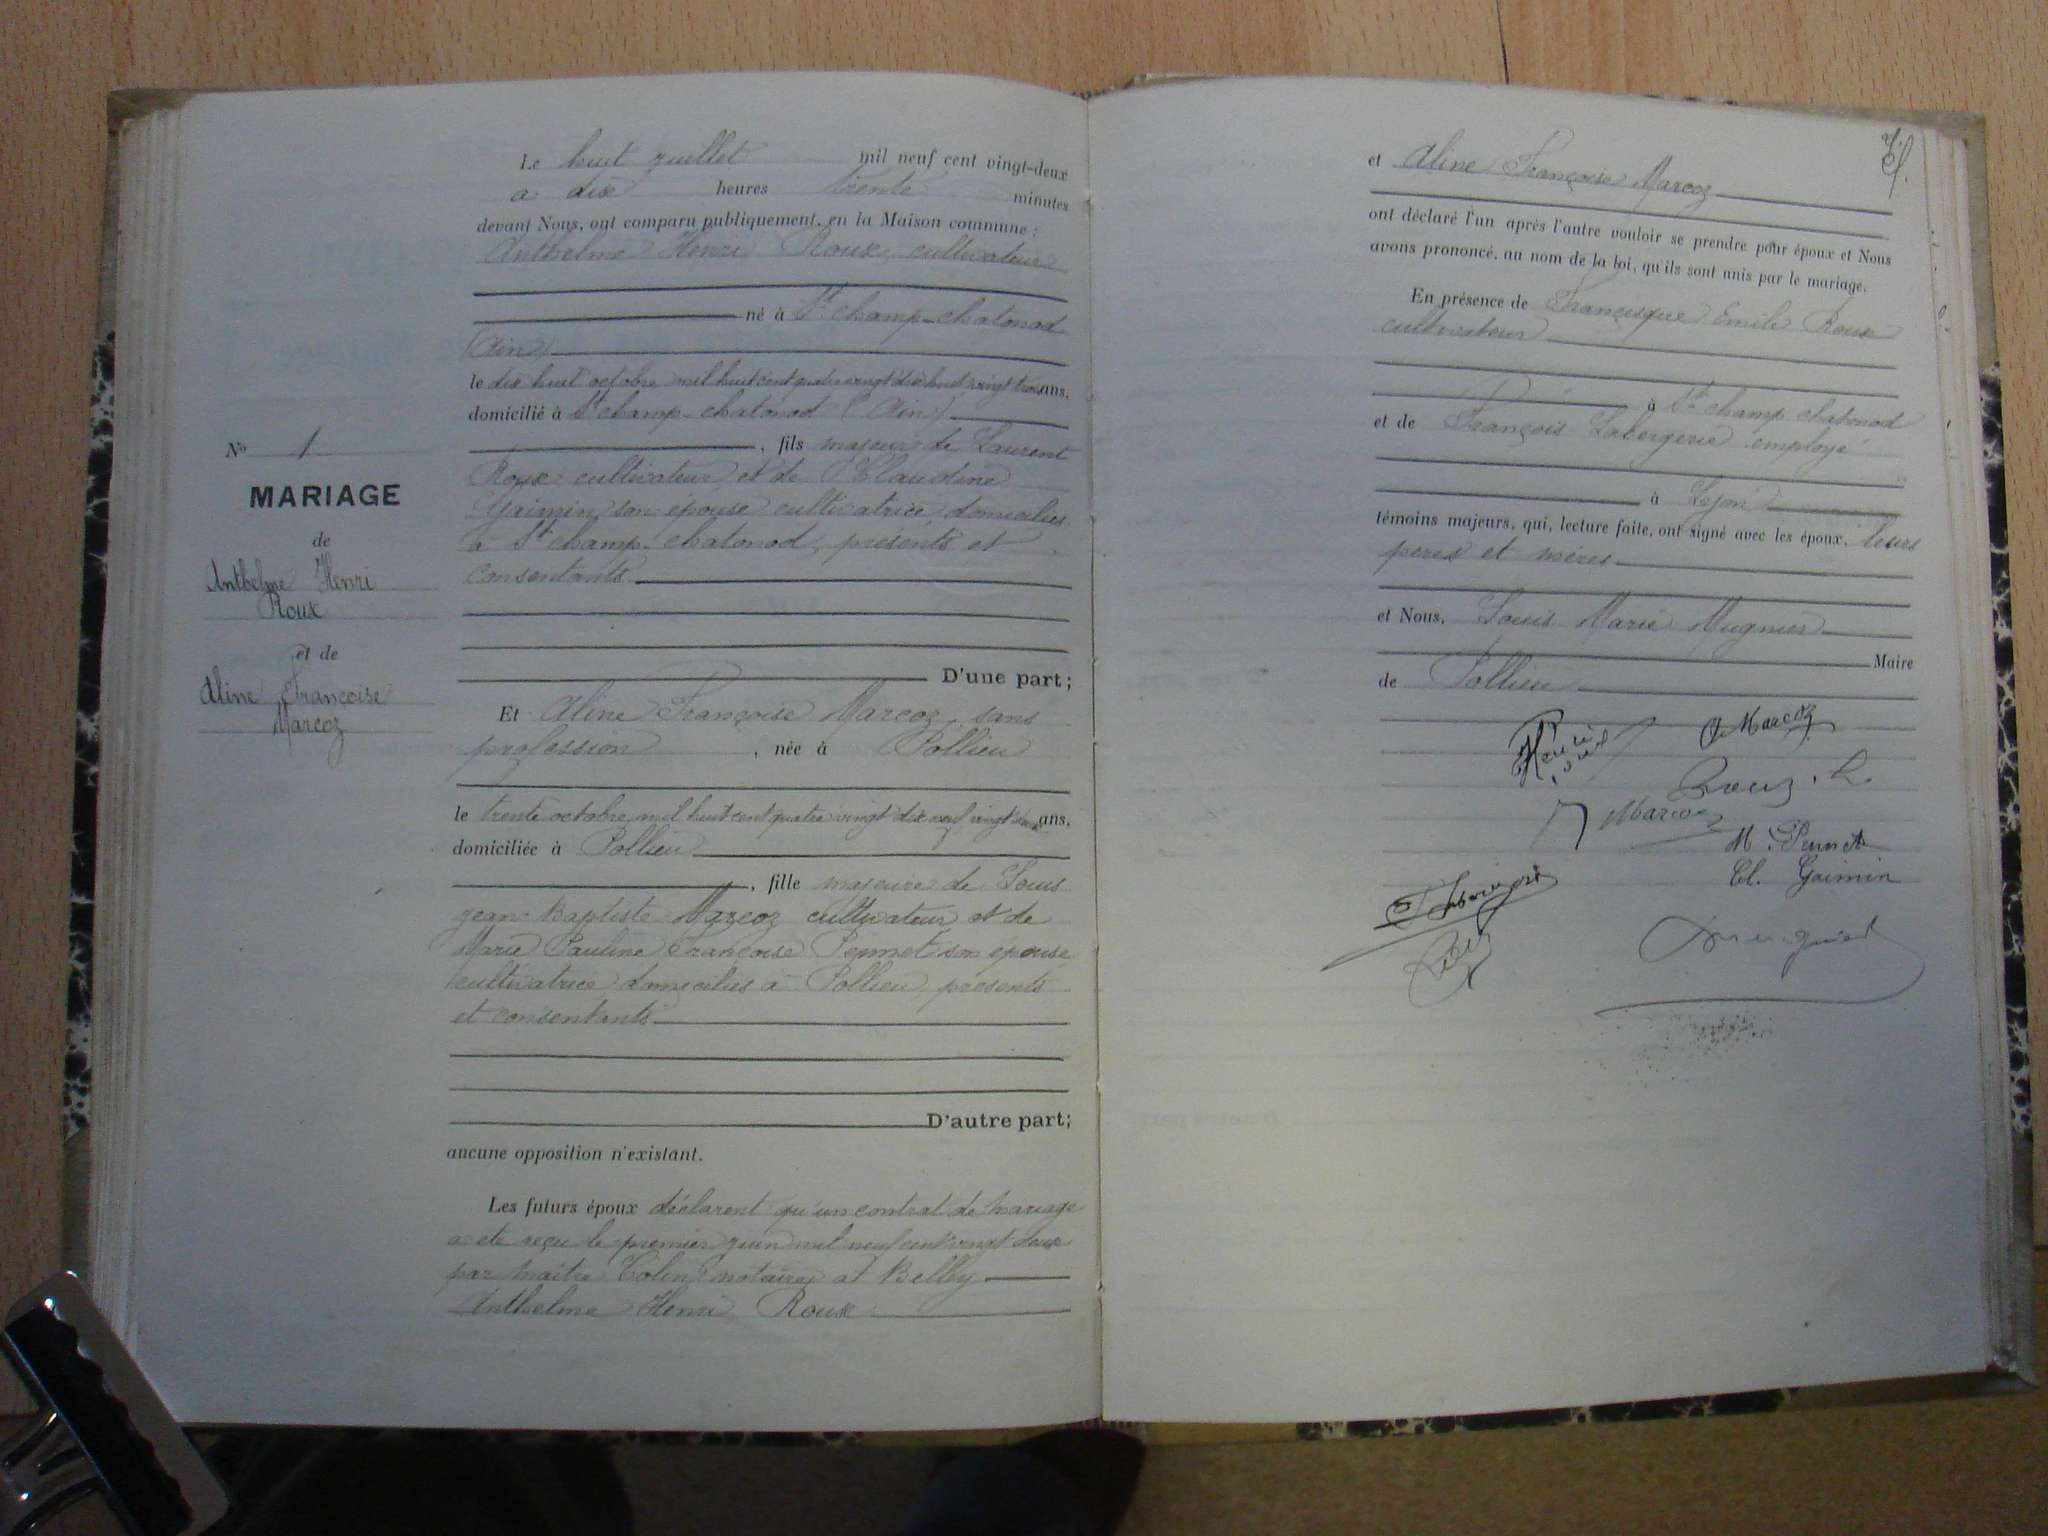 Le huit juillet mil neuf cent vingt-deux
à dix heures trente minutes
devant Nous, ont comparu publiquement, en la Maison commune :
Anthelme Henri Roux, cultivateur
né à St champ-chatonod
(Ain)
le dix huit octobre mil huit cent quatre vingt dix huit vingt trois ans,
domicilié à St champ-chatonod (Ain)
, fils majeur de Laurent
Roux cultivateur et de Claudine
Gaimin son épouse cultivatrice domiciliés
à St champ-chatonod, présents et
consentants
D'une part;
Et Aline Françoise Marcoz, sans
profession, née à Pollieu
le trente octobre mil huit cent quatre vingt dix neuf vingt deux ans,
domiciliée à Pollieu
, fille majeure de Louis
Jean-Baptiste Marcoz cultivateur et de
Marie Pauline Françoise Pennet son épouse
cultivatrice domiciliés à Pollieu, présents
et consentants
D'autre part;
aucune opposition n'existant.
Les futurs époux déclarent qu'un contrat de mariage
a été reçu le premier juin mil neuf cent vingt deux
par maître Colin notaire à Belley
Anthelme Henri Roux
No 1
MARIAGE
de
Anthelme Henri
Roux
et de
Aline Françoise
Marcoz
et Aline Françoise Marcoz
ont déclaré l'un après l'autre vouloir se prendre pour époux et Nous
avons prononcé, au nom de la loi, qu'ils sont unis par le mariage.
En présence de Francisque Emile Roux
cultivateur
à St champ-chatonod
et de François Labergerie employé
à Lyon
témoins majeurs, qui, lecture faite, ont signé avec les époux, leurs
pères et mères
et Nous, Louis Marie Mugnier
Maire
de Pollieu
Henri Roux
A Marcoz
Roux. L
Marcoz
M. Pennet
Cl. Gaimin